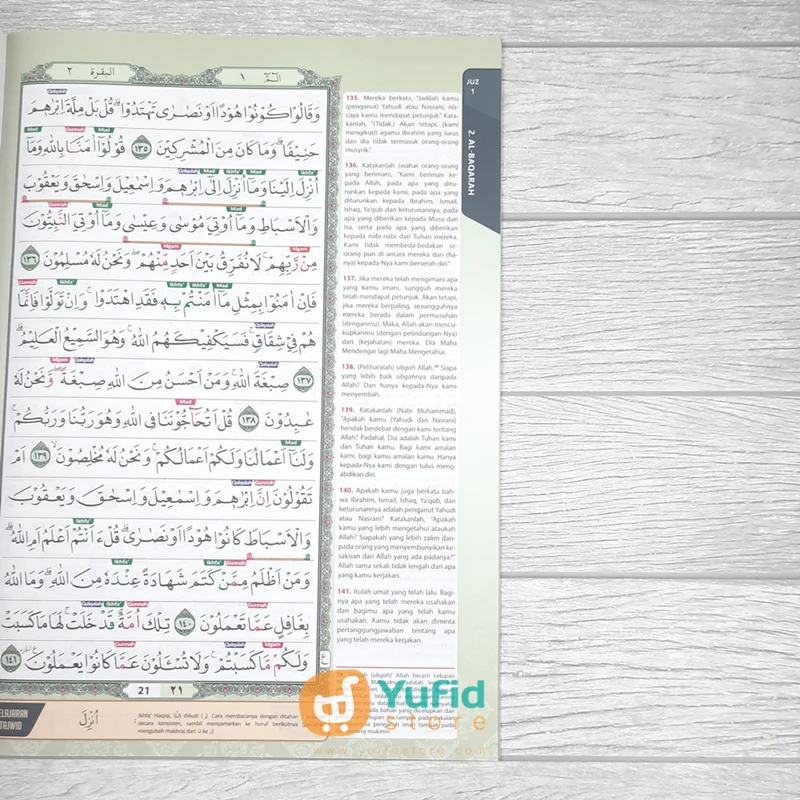 البقرة ٢
الۤمّۤ ١
وَقَالُوْا كُوْنُوْا هُوْدًا اَوْ نَصٰرٰى تَهْتَدُوْا ۗ قُلْ بَلْ مِلَّةَ اِبْرٰهٖمَ
حَنِيْفًا ۗ وَمَا كَانَ مِنَ الْمُشْرِكِيْنَ ١٣٥ قُوْلُوْٓا اٰمَنَّا بِاللّٰهِ وَمَآ
اُنْزِلَ اِلَيْنَا وَمَآ اُنْزِلَ اِلٰٓى اِبْرٰهٖمَ وَاِسْمٰعِيْلَ وَاِسْحٰقَ وَيَعْقُوْبَ
وَالْاَسْبَاطِ وَمَآ اُوْتِيَ مُوْسٰى وَعِيْسٰى وَمَآ اُوْتِيَ النَّبِيُّوْنَ
مِنْ رَّبِّهِمْ ۚ لَا نُفَرِّقُ بَيْنَ اَحَدٍ مِّنْهُمْ ۖ وَنَحْنُ لَهٗ مُسْلِمُوْنَ ١٣٦
فَاِنْ اٰمَنُوْا بِمِثْلِ مَآ اٰمَنْتُمْ بِهٖ فَقَدِ اهْتَدَوْا ۚ وَاِنْ تَوَلَّوْا فَاِنَّمَا
هُمْ فِيْ شِقَاقٍ ۚ فَسَيَكْفِيْكَهُمُ اللّٰهُ ۚ وَهُوَ السَّمِيْعُ الْعَلِيْمُ ۗ
١٣٧ صِبْغَةَ اللّٰهِ ۚ وَمَنْ اَحْسَنُ مِنَ اللّٰهِ صِبْغَةً ۖ وَّنَحْنُ لَهٗ
عٰبِدُوْنَ ١٣٨ قُلْ اَتُحَاۤجُّوْنَنَا فِى اللّٰهِ وَهُوَ رَبُّنَا وَرَبُّكُمْ ۚ
وَلَنَآ اَعْمَالُنَا وَلَكُمْ اَعْمَالُكُمْ ۚ وَنَحْنُ لَهٗ مُخْلِصُوْنَ ۙ ١٣٩ اَمْ
تَقُوْلُوْنَ اِنَّ اِبْرٰهٖمَ وَاِسْمٰعِيْلَ وَاِسْحٰقَ وَيَعْقُوْبَ
وَالْاَسْبَاطَ كَانُوْا هُوْدًا اَوْ نَصٰرٰى ۗ قُلْ ءَاَنْتُمْ اَعْلَمُ اَمِ اللّٰهُ ۗ
وَمَنْ اَظْلَمُ مِمَّنْ كَتَمَ شَهَادَةً عِنْدَهٗ مِنَ اللّٰهِ ۗ وَمَا اللّٰهُ
بِغَافِلٍ عَمَّا تَعْمَلُوْنَ ١٤٠ تِلْكَ اُمَّةٌ قَدْ خَلَتْ ۚ لَهَا مَا كَسَبَتْ
وَلَكُمْ مَّا كَسَبْتُمْ ۚ وَلَا تُسْـَٔلُوْنَ عَمَّا كَانُوْا يَعْمَلُوْنَ ١٤١
21 ٢١
135. Mereka berkata, "Jadilah kamu
(penganut) Yahudi atau Nasrani, nis-
caya kamu mendapat petunjuk." Kata-
kanlah, "(Tidak.) Akan tetapi, (kami
mengikuti) agama Ibrahim yang lurus
dan dia tidak termasuk orang-orang
musyrik."
136. Katakanlah (wahai orang-orang
yang beriman), "Kami beriman ke-
pada Allah, pada apa yang ditu-
runkan kepada kami, pada apa yang
diturunkan kepada Ibrahim, Ismail,
Ishaq, Ya'qub dan keturunannya, pada
apa yang diberikan kepada Musa dan
Isa, serta pada apa yang diberikan
kepada nabi-nabi dari Tuhan mereka.
Kami tidak membeda-bedakan se-
orang pun di antara mereka dan (ha-
nya) kepada-Nya kami berserah diri."
137. Jika mereka telah mengimani apa
yang kamu imani, sungguh mereka
telah mendapat petunjuk. Akan tetapi,
jika mereka berpaling, sesungguhnya
mereka berada dalam permusuhan
(denganmu). Maka, Allah akan mencu-
kupkanmu (dengan pelindungan-Nya)
dari (kejahatan) mereka. Dia Maha
Mendengar lagi Maha Mengetahui.
138. (Peliharalah) sibgah Allah. Siapa
yang lebih baik sibgahnya daripada
Allah? Dan hanya kepada-Nya kami
menyembah.
139. Katakanlah (Nabi Muhammad),
"Apakah kamu (Yahudi dan Nasrani)
hendak berdebat dengan kami tentang
Allah? Padahal, Dia adalah Tuhan kami
dan Tuhan kamu. Bagi kami amalan
kami, bagi kamu amalan kamu. Hanya
kepada-Nya kami dengan tulus meng-
abdikan diri.
140. Apakah kamu juga berkata bah-
wa Ibrahim, Ismail, Ishaq, Ya'qub, dan
keturunannya adalah penganut Yahudi
atau Nasrani? Katakanlah, "Apakah
kamu yang lebih mengetahui ataukah
Allah? Siapakah yang lebih zalim dari-
pada orang yang menyembunyikan ke-
saksian dari Allah yang ada padanya?"
Allah sama sekali tidak lengah dari apa
yang kamu kerjakan.
141. Itulah umat yang telah lalu. Bagi-
nya apa yang telah mereka usahakan
dan bagimu apa yang telah kamu
usahakan. Kamu tidak akan diminta
pertanggungjawaban tentang apa
yang telah mereka kerjakan.
JUZ
1
2. AL-BAQARAH
ELAJARAN
TAJWID
اُنْزِلَ
Ikhfa' Haqiqi, (ن) diikuti (ز). Cara membacanya dengan ditahan
secara konsisten, sambil menyamarkan ke huruf berikutnya
mengubah makhraj dari ن ke ز.
Yufid
store
www.yufidstore.com